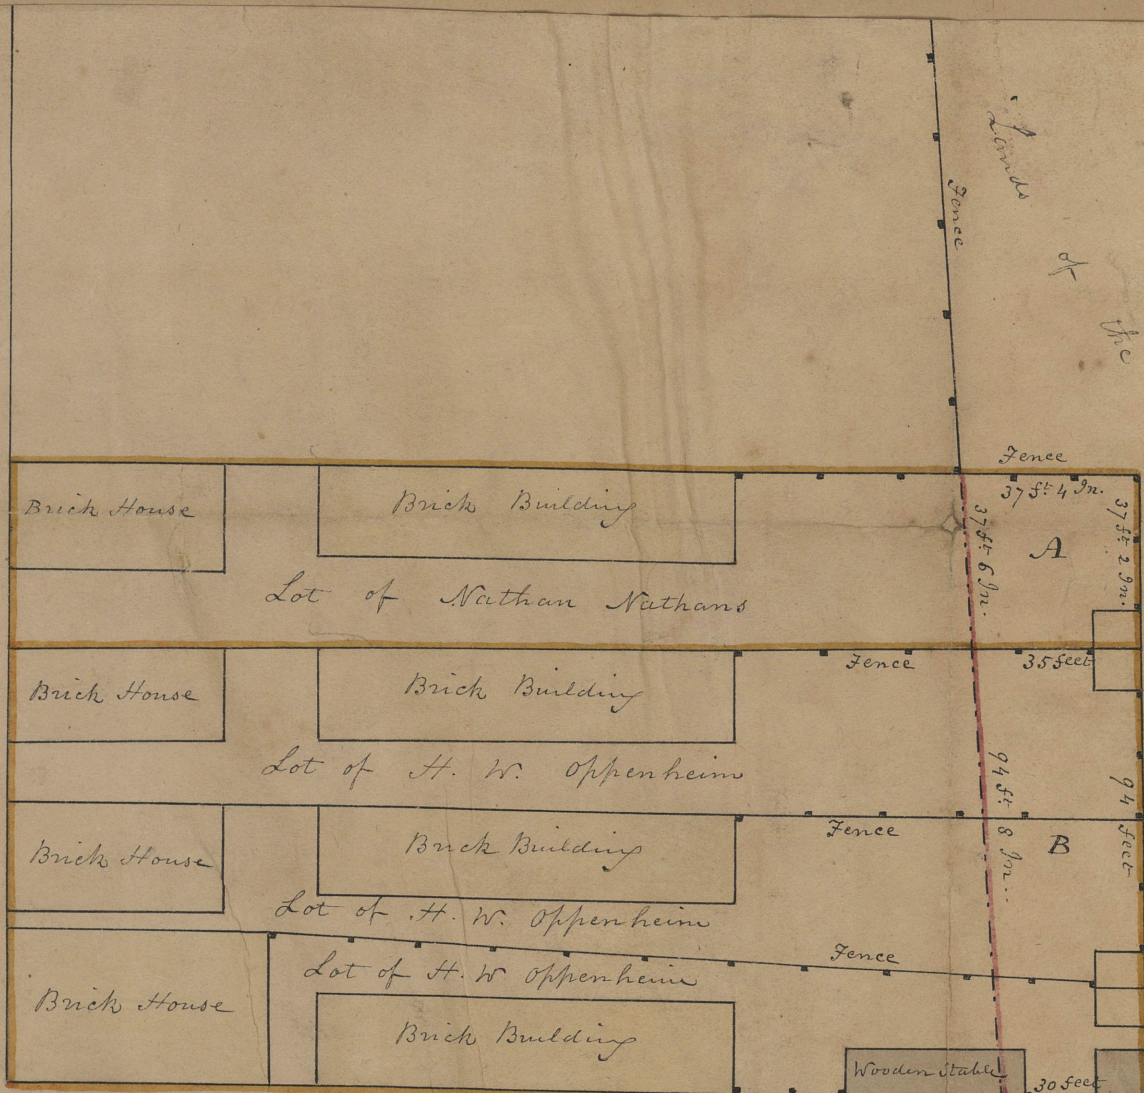 Lands
of
the
Fence
Fence
37 ft. 4 In.
Brick House
Brick Building
37 ft. 6 In.
A
37 ft. 2 In.
Lot of Nathan Nathans
Brick House
Brick Building
Fence
35 feet
Lot of H. W. Oppenheim
94 ft. 8 In.
94 feet
Brick House
Brick Building
Fence
B
Lot of H. W. Oppenheim
Fence
Lot of H. W Oppenheim
Brick House
Brick Building
Wooden Stable
30 feet